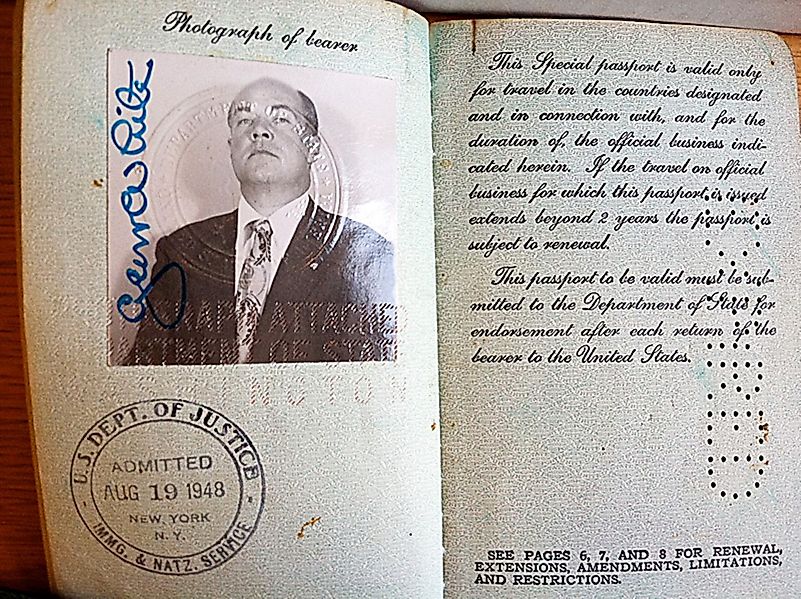 Photograph of bearer
U.S. DEPT. OF JUSTICE
ADMITTED
AUG 19 1948
NEW YORK
N. Y.
IMMG. & NATZ. SERVICE
This Special passport is valid only
for travel in the countries designated
and in connection with, and for the
duration of, the official business indi-
cated herein. If the travel on official
business for which this passport is issued
extends beyond 2 years the passport is
subject to renewal.
This passport to be valid must be sub-
mitted to the Department of State for
endorsement after each return of the
bearer to the United States.
SEE PAGES 6, 7, AND 8 FOR RENEWAL,
EXTENSIONS, AMENDMENTS, LIMITATIONS,
AND RESTRICTIONS.